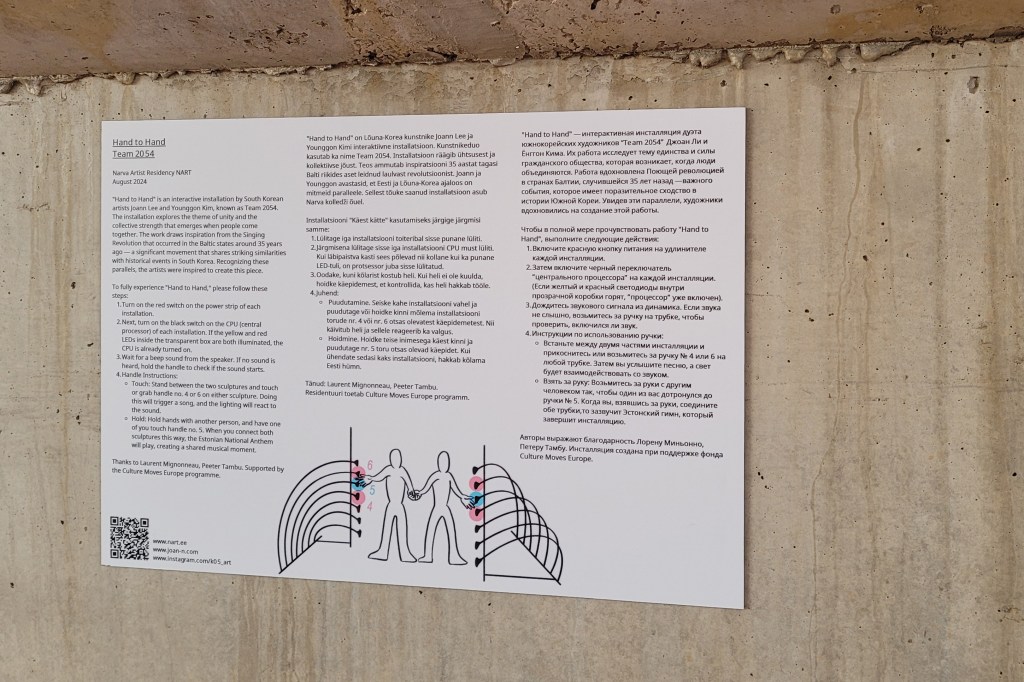 Hand to Hand
Team 2054
Narva Artist Residency NART
August 2024
"Hand to Hand" is an interactive installation by South Korean
artists Joann Lee and Younggon Kim, known as Team 2054.
The installation explores the theme of unity and the
collective strength that emerges when people come
together. The work draws inspiration from the Singing
Revolution that occurred in the Baltic states around 35 years
ago — a significant movement that shares striking similarities
with historical events in South Korea. Recognizing these
parallels, the artists were inspired to create this piece.
To fully experience "Hand to Hand," please follow these
steps:
1.Turn on the red switch on the power strip of each
installation.
2.Next, turn on the black switch on the CPU (central
processor) of each installation. If the yellow and red
LEDs inside the transparent box are both illuminated, the
CPU is already turned on.
3.Wait for a beep sound from the speaker. If no sound is
heard, hold the handle to check if the sound starts.
4.Handle Instructions:
Touch: Stand between the two sculptures and touch
or grab handle no. 4 or 6 on either sculpture. Doing
this will trigger a song, and the lighting will react to
the sound.
Hold: Hold hands with another person, and have one
of you touch handle no. 5. When you connect both
sculptures this way, the Estonian National Anthem
will play, creating a shared musical moment.
Thanks to Laurent Mignonneau, Peeter Tambu. Supported by
the Culture Moves Europe programme.
www.nart.ee
www.joan-n.com
www.instagram.com/k05_art
"Hand to Hand" on Lõuna-Korea kunstnike Joann Lee ja
Younggon Kimi interaktiivne installatsioon. Kunstnikeduo
kasutab ka nime Team 2054. Installatsioon räägib ühtsusest ja
kollektiivse jõust. Teos ammutab inspiratsiooni 35 aastat tagasi
Balti riikides aset leidnud laulvast revolutsioonist. Joann ja
Younggon avastasid, et Eesti ja Lõuna-Korea ajaloos on
mitmeid paralleele. Sellest tõuke saanud installatsioon asub
Narva kolledži õuel.
Installatsiooni "Käest kätte" kasutamiseks järgige järgmisi
samme:
1.Lülitage iga installatsiooni toiteribal sisse punane lüliti.
2.Järgmisena lülitage sisse iga installatsiooni CPU must lüliti.
Kui läbipaistva kasti sees põlevad nii kollane kui ka punane
LED-tuli, on protsessor juba sisse lülitatud.
3.Oodake, kuni kõlarist kostub heli. Kui heli ei ole kuulda,
hoidke käepidemest, et kontrollida, kas heli hakkab tööle.
4.Juhend:
Puudutamine. Seiske kahe installatsiooni vahel ja
puudutage või hoidke kinni mõlema installatsiooni
torude nr. 4 või nr. 6 otsas olevatest käepidemetest. Nii
käivitub heli ja sellele reageerib ka valgus.
Hoidmine. Hoidke teise inimesega käest kinni ja
puudutage nr. 5 toru otsas olevad käepidet. Kui
ühendate sedasi kaks installatsiooni, hakkab kõlama
Eesti hümn.
Tänud: Laurent Mignonneau, Peeter Tambu.
Residentuuri toetab Culture Moves Europe programm.
"Hand to Hand" — интерактивная инсталляция дуэта
южнокорейских художников "Team 2054" Джоан Ли и
Ёнггон Кима. Их работа исследует тему единства и силы
гражданского общества, которая возникает, когда люди
объединяются. Работа вдохновлена Поющей революцией
в странах Балтии, случившейся 35 лет назад —важного
события, которое имеет поразительное сходство в
истории Южной Кореи. Увидев эти параллели, художники
вдохновились на создание этой работы.
Чтобы в полной мере прочувствовать работу "Hand to
Hand", выполните следующие действия:
1.Включите красную кнопку питания на удлинителе
каждой инсталляции.
2.Затем включите черный переключатель
"центрального процессора" на каждой инсталляции.
(Если желтый и красный светодиоды внутри
прозрачной коробки горят, "процессор" уже включен).
3.Дождитесь звукового сигнала из динамика. Если звука
не слышно, возьмитесь за ручку на трубке, чтобы
проверить, включился ли звук.
4.Инструкции по использованию ручки:
Встаньте между двумя частями инсталляции и
прикоснитесь или возьмитесь за ручку № 4 или 6 на
любой трубке. Затем вы услышите песню, а свет
будет взаимодействовать со звуком.
Взять за руку: Возьмитесь за руки с другим
человеком так, чтобы один из вас дотронулся до
ручки № 5. Когда вы, взявшись за руки, соедините
обе трубки,то зазвучит Эстонский гимн, который
завершит инсталляцию.
Авторы выражают благодарность Лорену Миньонно,
Петеру Тамбу. Инсталляция создана при поддержке фонда
Culture Moves Europe.
6
5
4